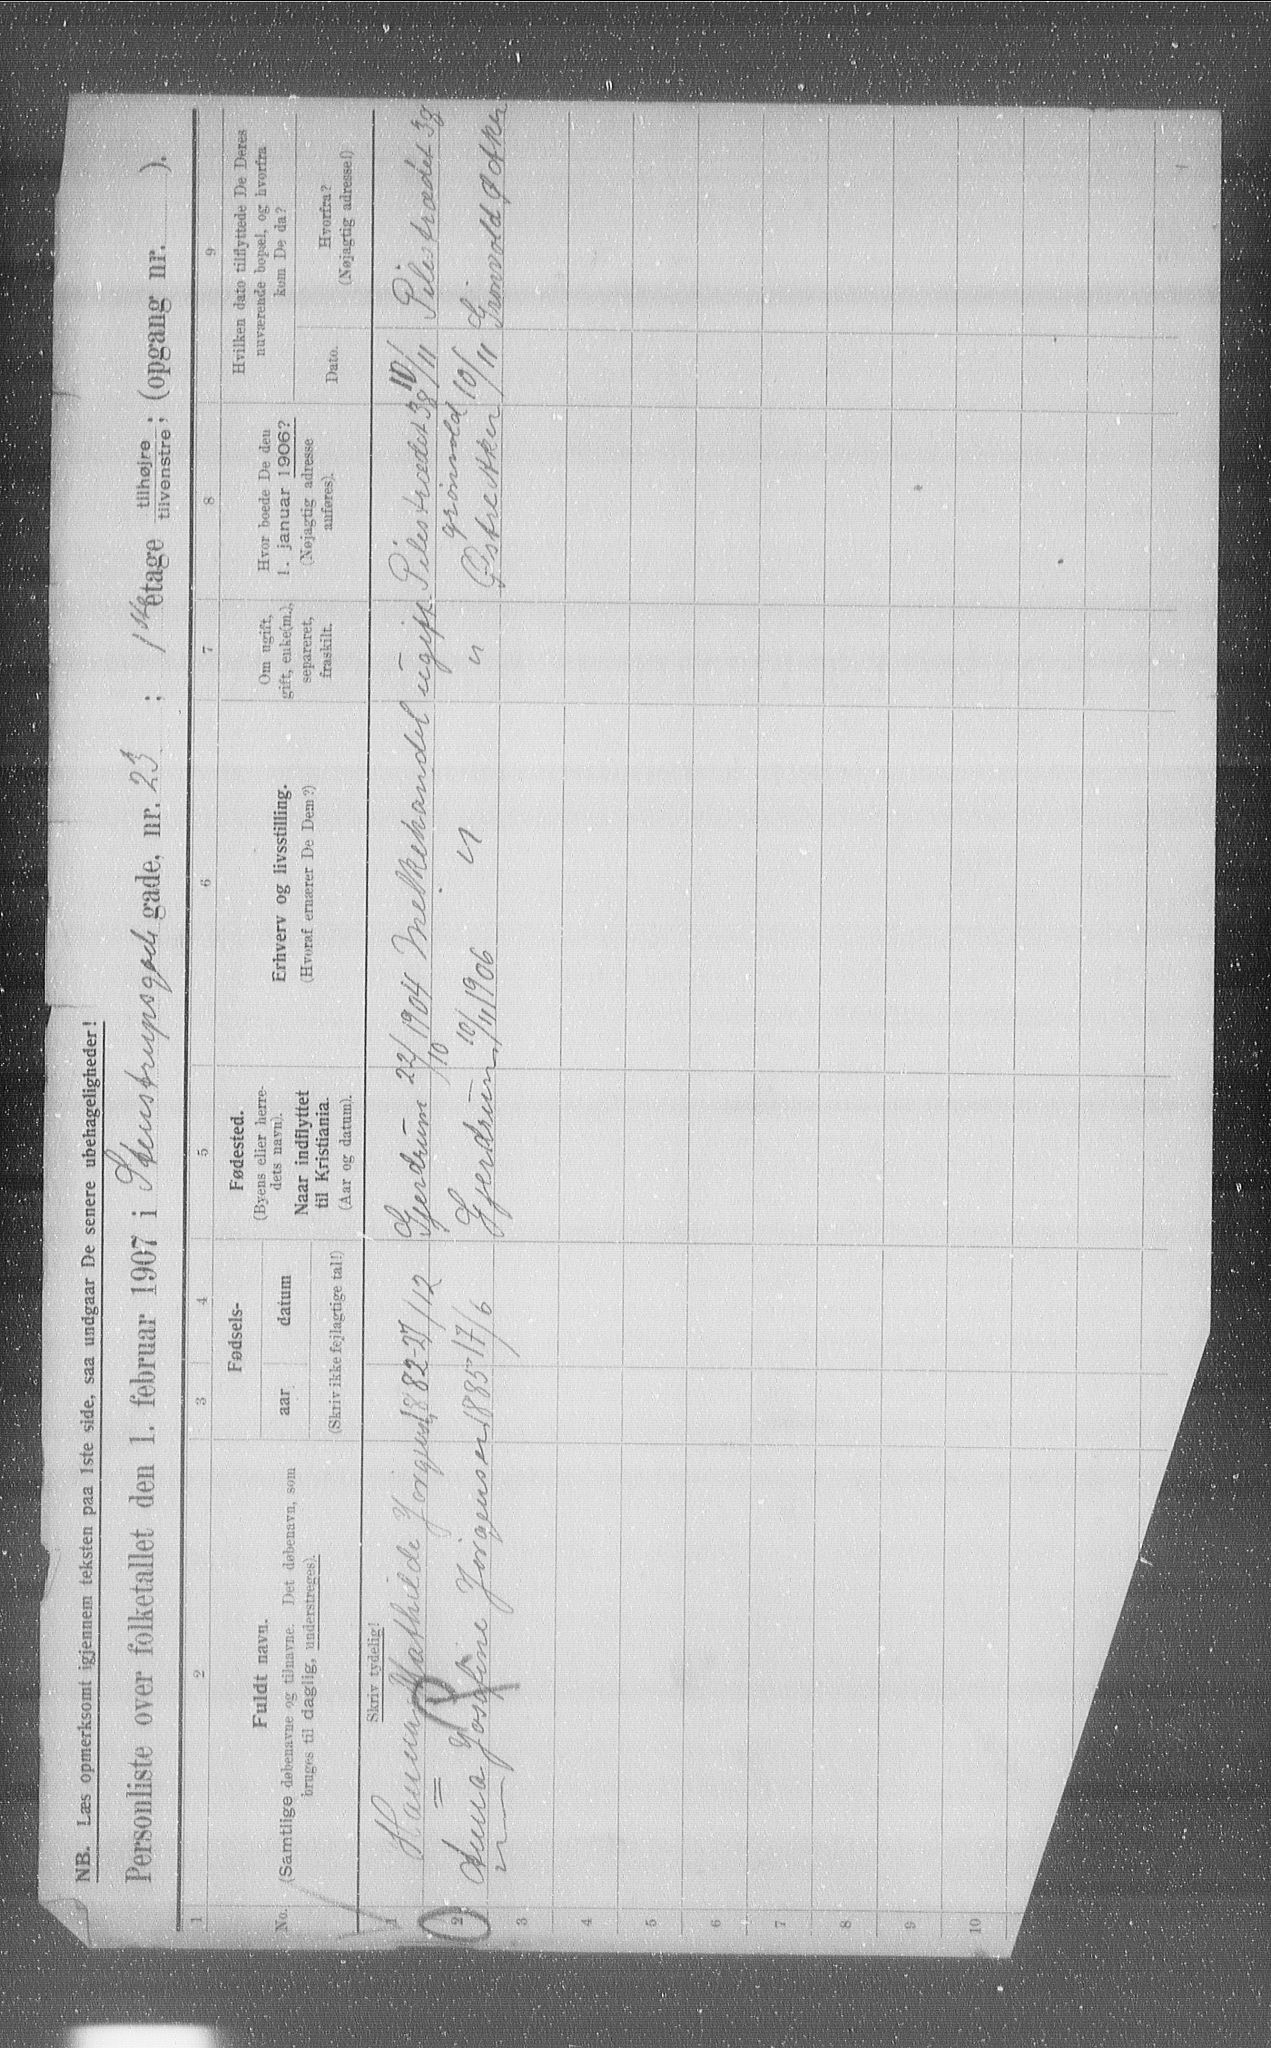 NB. Læs opmerksomt igjennem teksten paa 1ste side, saa undgaar De senere ubehageligheder!
Personliste over folketallet den 1. februar 1907 i Stenstrupsgade gade, nr. 23 ; 1ste etage tilhøjre tilvenstre ; (opgang nr. ).
1 2 3 4 5 6 7 8 9
No.
Fuldt navn.
(Samtlige døbenavne og tilnavne. Det døbenavn, som
bruges til daglig, understreges).
Fødsels-
aar datum
(Skriv ikke fejlagtige tal!)
Fødested.
(Byens eller herre-
dets navn).
Naar indflyttet
til Kristiania.
(Aar og datum).
Erhverv og livsstilling.
(Hvoraf ernærer De Dem?)
Om ugift,
gift, enke(m.),
separeret,
fraskilt.
Hvor boede De den
1. januar 1906?
(Nøjagtig adresse
anføres).
Hvilken dato tilflyttede De Deres
nuværende bopæl, og hvorfra
kom De da?
Dato.
Hvorfra?
(Nøjagtig adresse!)
Skriv tydelig!
1 Hanna Mathilde Jørgensen 1882 - 27/12 Gjerdrum 22/10 1904 Melkehandel ugift Pilestrædet 38 10/11 Pilestrædet 38
2 Anna Josefine Jørgensen 1885 17/6 Gjerdrum 10/11 1906 " " Grønvold Østre Aker 10/11 Grønvold Ø Aker
3
4
5
6
7
8
9
10